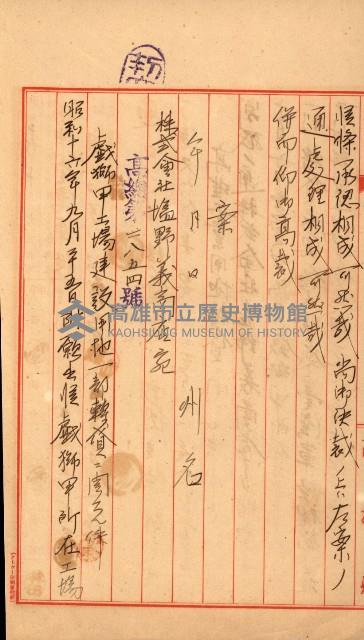 候條承認相成可然哉尚御決裁ノ上ハ左案ノ
通處理相成可然哉
併而仰御高裁
案
年月日
州名
株式會社塩野義商店宛
高 第二八五四號
戲獅甲工場建設用地一部轉貸ニ関スル件
昭和十六年九月二十五日附願出候戲獅甲所在工場
高雄市立歷史博物館
KAOHSIUNG MUSEUM OF HISTORY